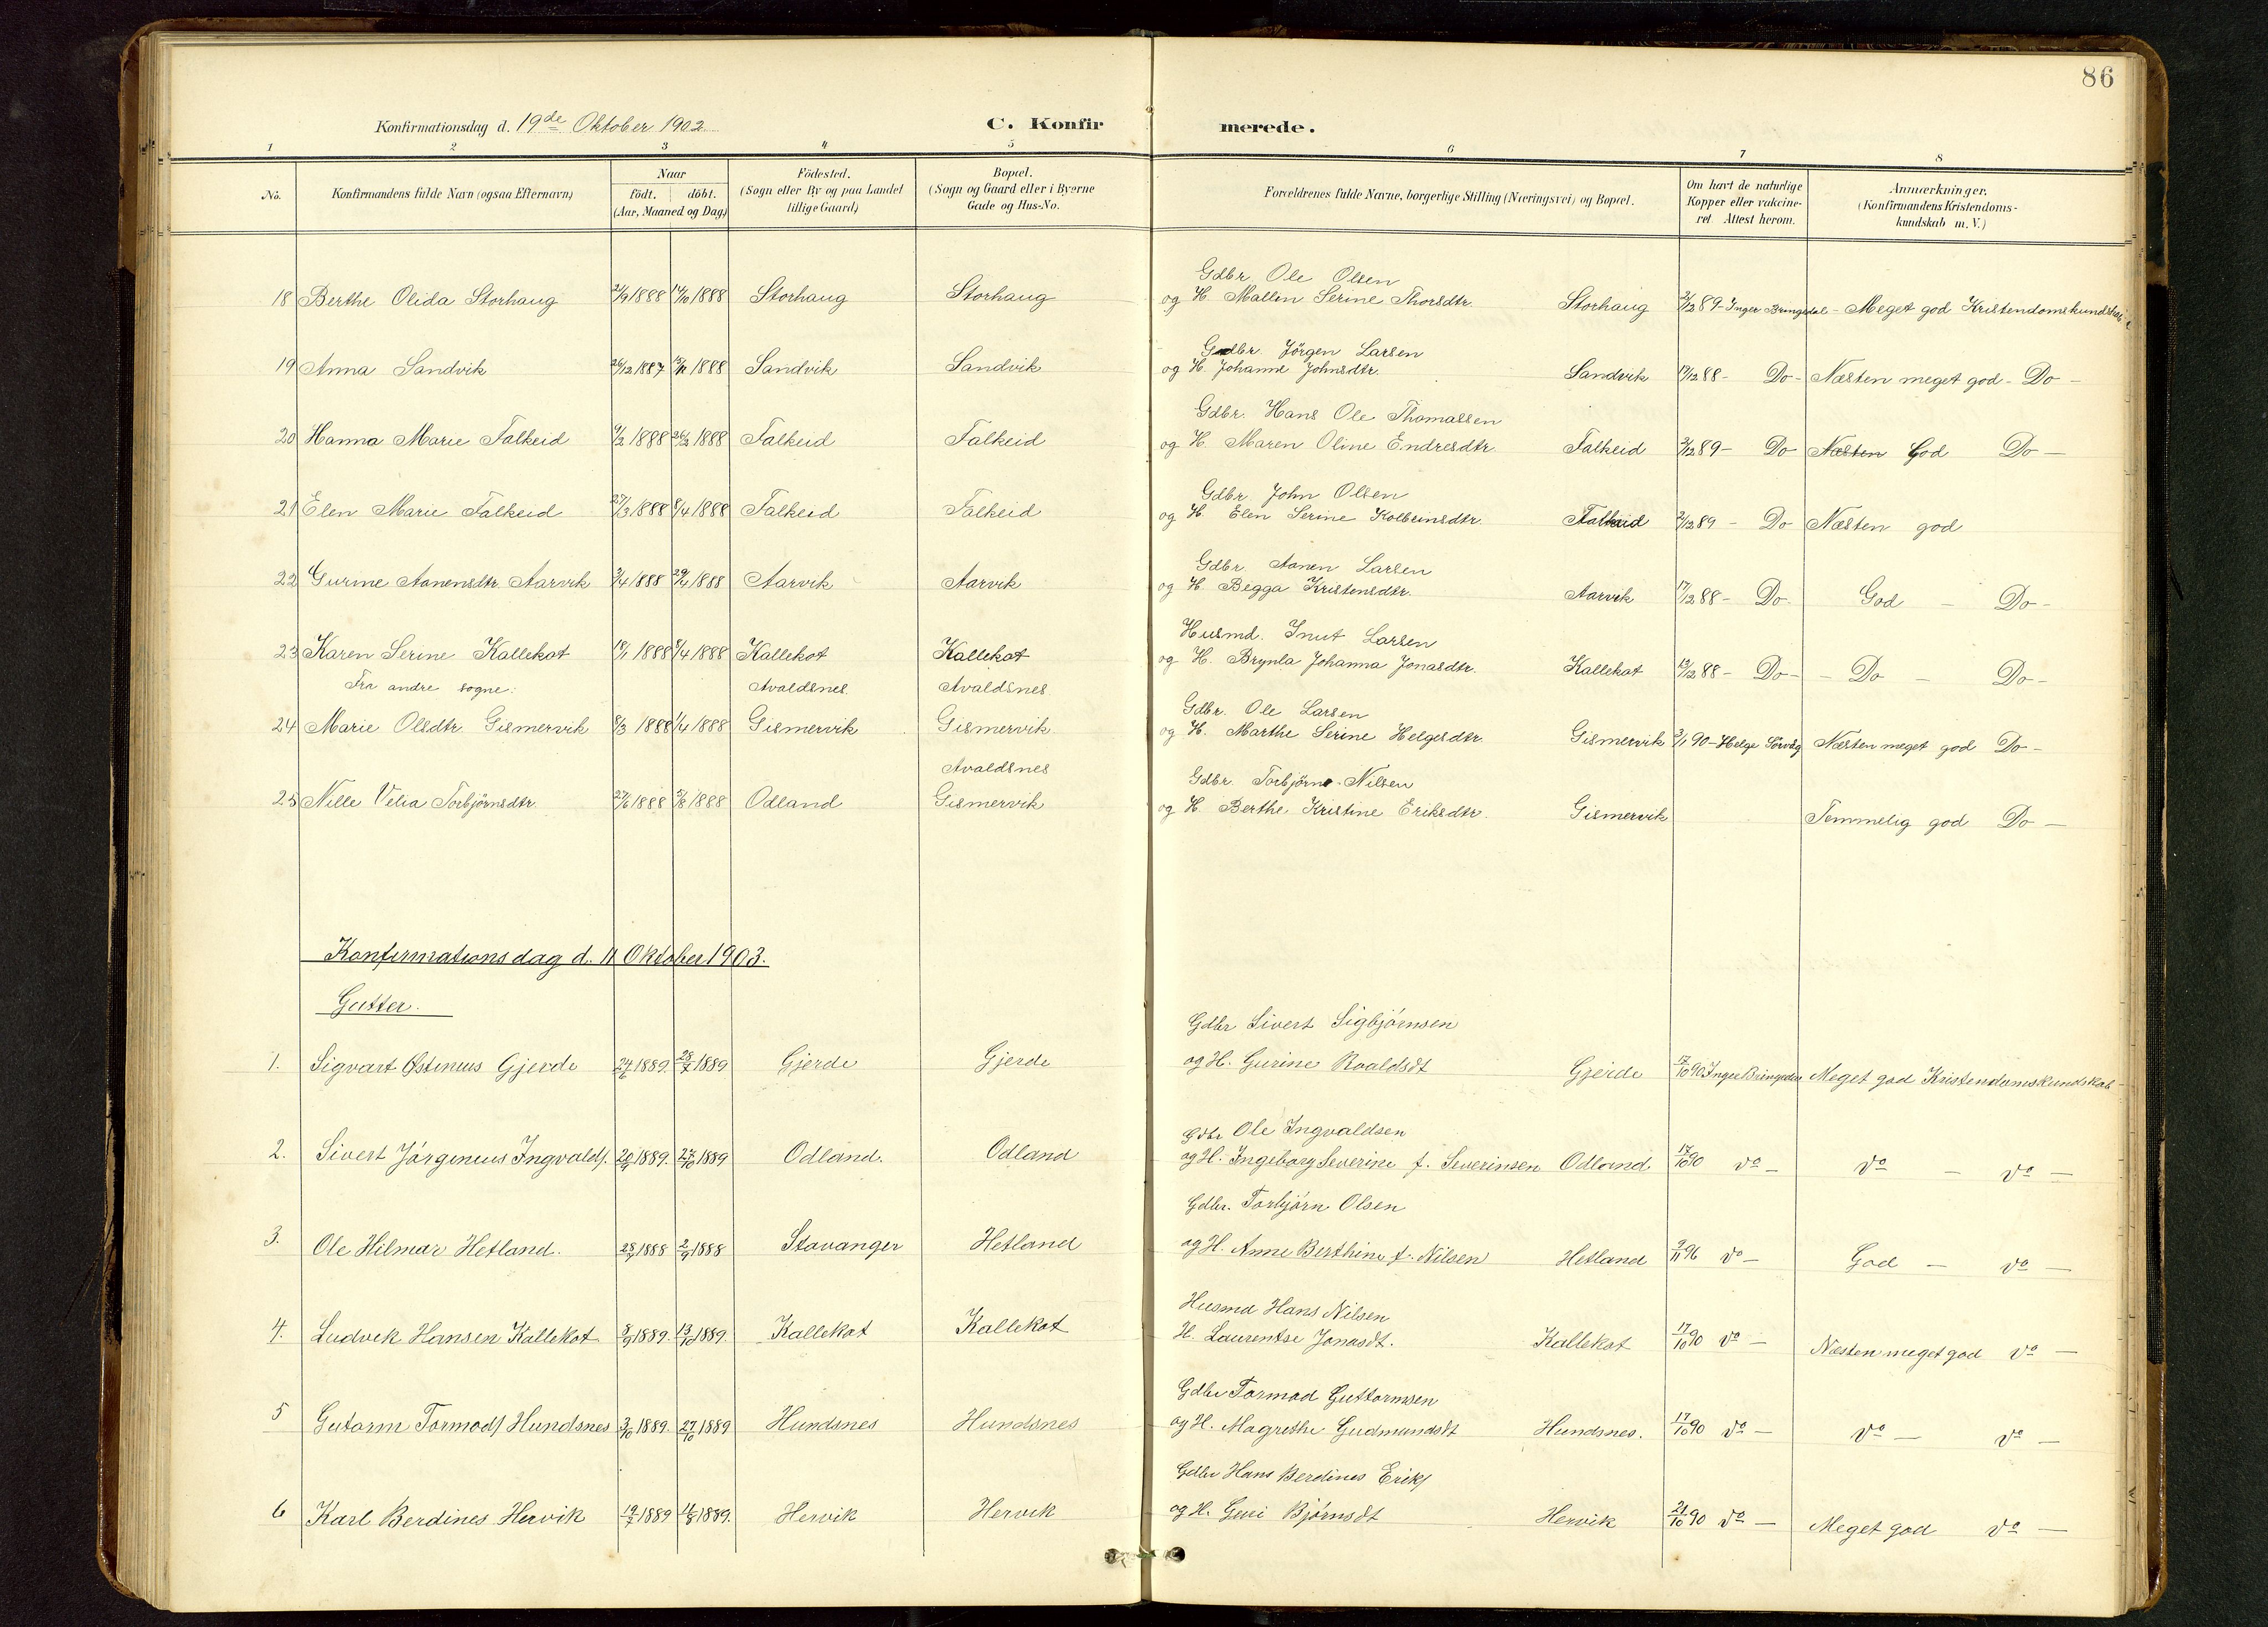 86
Konfirmationsdag d. 19de Oktober 1902. C. Konfirmerede.
1 2 3 4 5 6 7 8
No. Konfirmandens fulde Navn (ogsaa Efternavn) Naar födt. döbt. (Aar, Maaned og Dag) Födested. (Sogn eller By og paa Landet tillige Gaard) Bopæl. (Sogn og Gaard eller i Byerne Gade og Hus-No. Forældrenes fulde Navne, borgerlige Stilling (Næringsvei) og Bopæl. Om havt de naturlige Kopper eller vakcineret. Attest herom. Anmærkninger, (Konfirmandens Kristendomskundskab m. V.)
Gdbr. Ole Olsen
18 Berthe Olida Storhaug 21/9 1888 14/10 1888 Storhaug Storhaug og H. Mallin Serine Thorsdtr. Storhaug 2/12 89 - Inger Bringedal - Meget god Kristendomskundskab
Gdbr. Jörgen Larsen
19 Anna Sandvik 26/12 1887 1888 Sandvik Sandvik og H. Johanne Johnsdtr. Sandvik 17/12 88 - Do - Næsten meget god - Do -
Gdbr. Hans Ole Thomassen
20 Hanna Marie Falkeid 9/2 1888 26/2 1888 Falkeid Falkeid og H. Maren Oline Endresdtr. Falkeid 2/12 89 - Do Næsten God Do -
Gdbr. John Olsen
21 Elen Marie Falkeid 27/3 1888 8/4 1888 Falkeid Falkeid og H. Elen Serine Kolbeinsdtr. Falkeid 2/12 89 - Do Næsten god
Gdbr. Aanen Larsen
22 Gurine Aanensdtr. Aarvik 3/4 1888 29/4 1888 Aarvik Aarvik og H. Begga Kristensdtr. Aarvik 17/12 88 - Do. God - Do -
Husmd. Knut Larsen
23 Karen Serine Kallekot 18/1 1888 8/4 1888 Kallekot Kallekot og H. Brynla Johanna Jonasdtr. Kallekot 88 - Do - - Do - Do -
Fra andre sogne: Avaldsnes. Avaldsnes
Gdbr. Ole Larsen
24 Marie Olsdtr. Gismervik 8/3 1888 1/4 1888 Gismervik Gismervik og H. Marthe Serine Helgesdtr. Gismervik 2/1 90 - Helge Sörvåg Næsten meget god Do -
Avaldsnes Gdbr. Torbjörn Nilsen
25 Nille Velia Torbjörnsdtr. 27/6 1888 5/8 1888 Odland Gismervik og H. Berthe Kristine Eriksdtr. Gismervik Temmelig god Do -
Konfirmationsdag d. 11 Oktober 1903.
Gutter.
Gdbr Sivert Sigbjörnsen
1. Sigvart Østenius Gjerde 24/6 1889. 28/7 1889 Gjerde Gjerde og H. Gurine Roaldsdt Gjerde 17/10 90 Inger Bringedal Meget god Kristendomskundskab -
Gdbr Ole Ingvaldsen
2. Sivert Jörgenius Ingvalds. 20/9 1889. 27/10 1889 Odland. Odland og H. Ingeborg Severine f. Severinsen Odland. 17/10 90 do - do - do -
Gdbr. Torbjörn Olsen
3. Ole Hilmar Hetland. 1888 2/9 1888 Stavanger Hetland og H. Anne Berthine f. Nilsen Hetland 9/11 96 do - God - do -
Husmd Hans Nilsen
4. Ludvik Hansen Kallekot 8/9 1889. 13/10 1889. Kallekot Kallekot H. Laurentse Jonasdt. Kallekot 17/10 90 do - Næsten meget god do -
Gdbr Tormod Guttormsen
5 Gutorm Tormods Hundsnes 3/10 1889. 27/10 1889 Hundsnes Hundsnes og H. Magrethe Gudmundsdt Hundsnes. 17/10 90 do - do - do -
Gdbr Hans Berdines Eriks
6 Karl Berdines Hervik 19/7 1889 11/8 1889. Hervik Hervik og H. Guri Bjørnsdt Hervik 21/10 90 do - Meget god do -